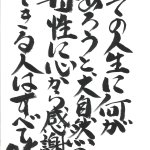 ての人生に何が
あろうと大自然
母性に心から感謝
できる人はすべて